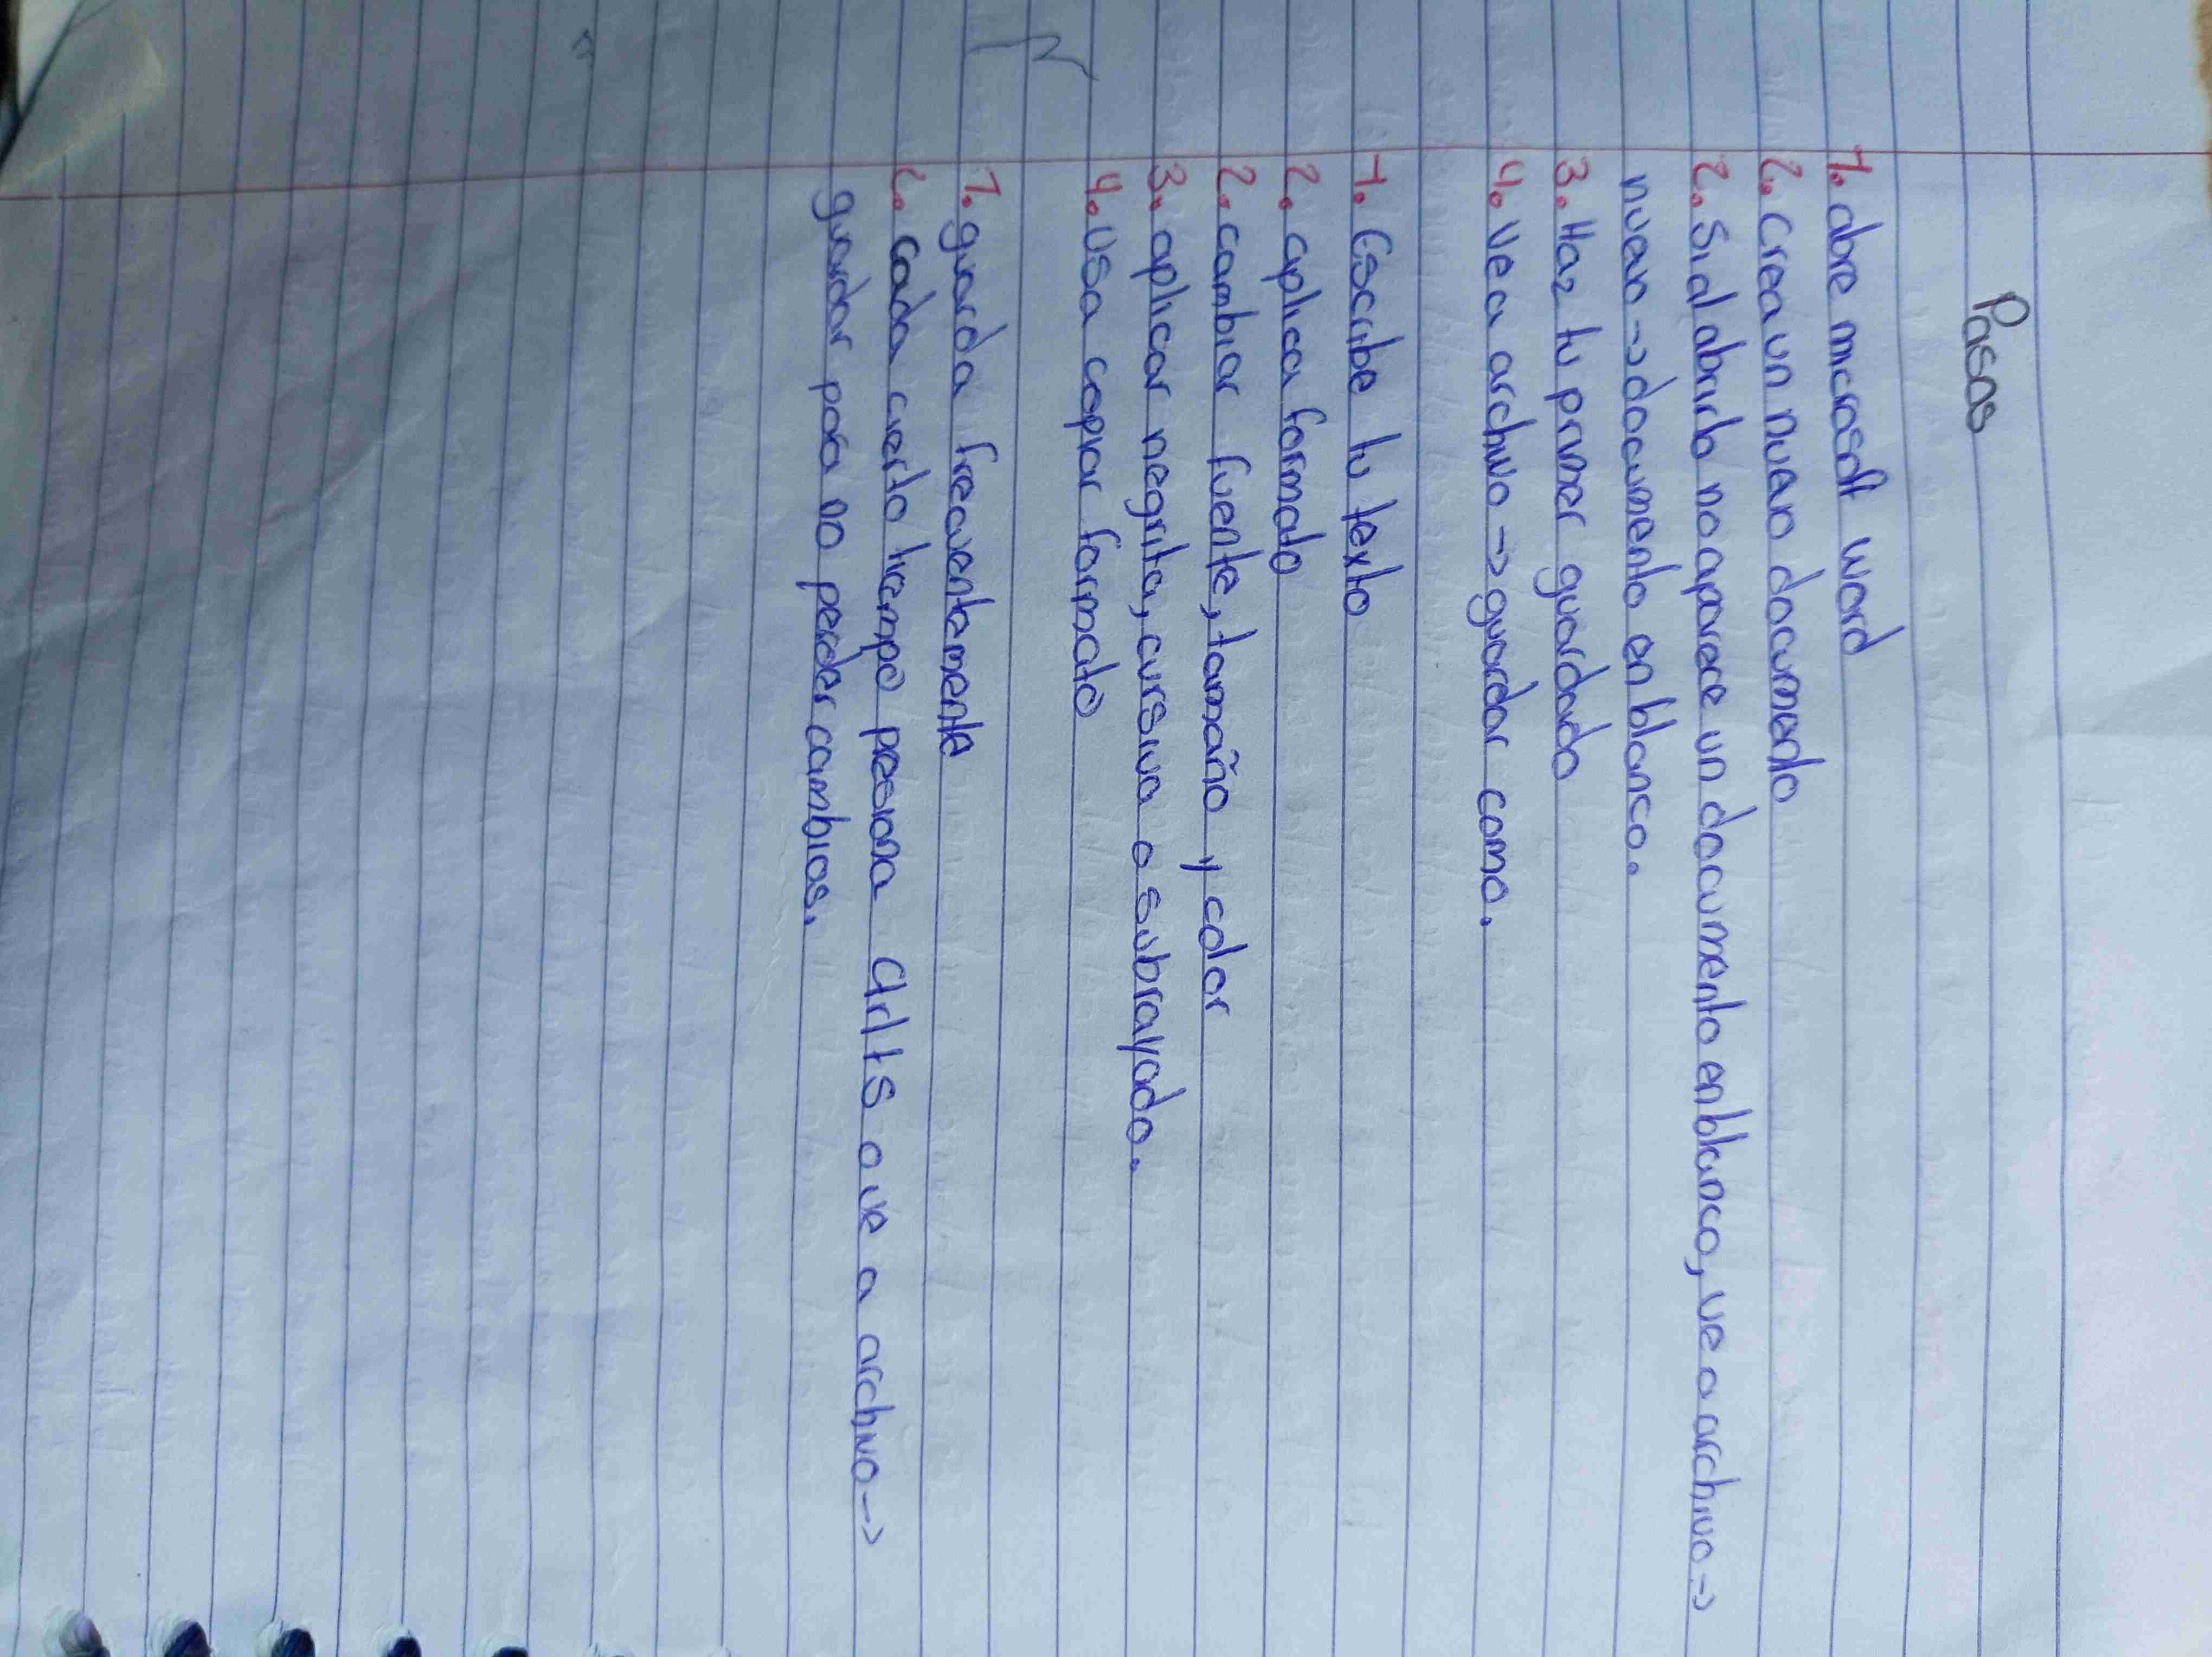 Pasos
1. abre microsoft word
2. crea un nuevo documento
2. Si al abrirlo no aparece un documento en blanco, ve a archivo →
nuevo → documento en blanco.
3. Haz tu primer guardado
4. Ve a archivo → guardar como.
1. Escribe tu texto
2. aplica formato
2. cambiar fuente, tamaño y color
3. aplicar negrita, cursiva o subrayado.
4. Usa copiar formato
1. guarda frecuentemente
2. cada cierto tiempo presiona Ctrl+S o ve a archivo →
guardar para no perder cambios.